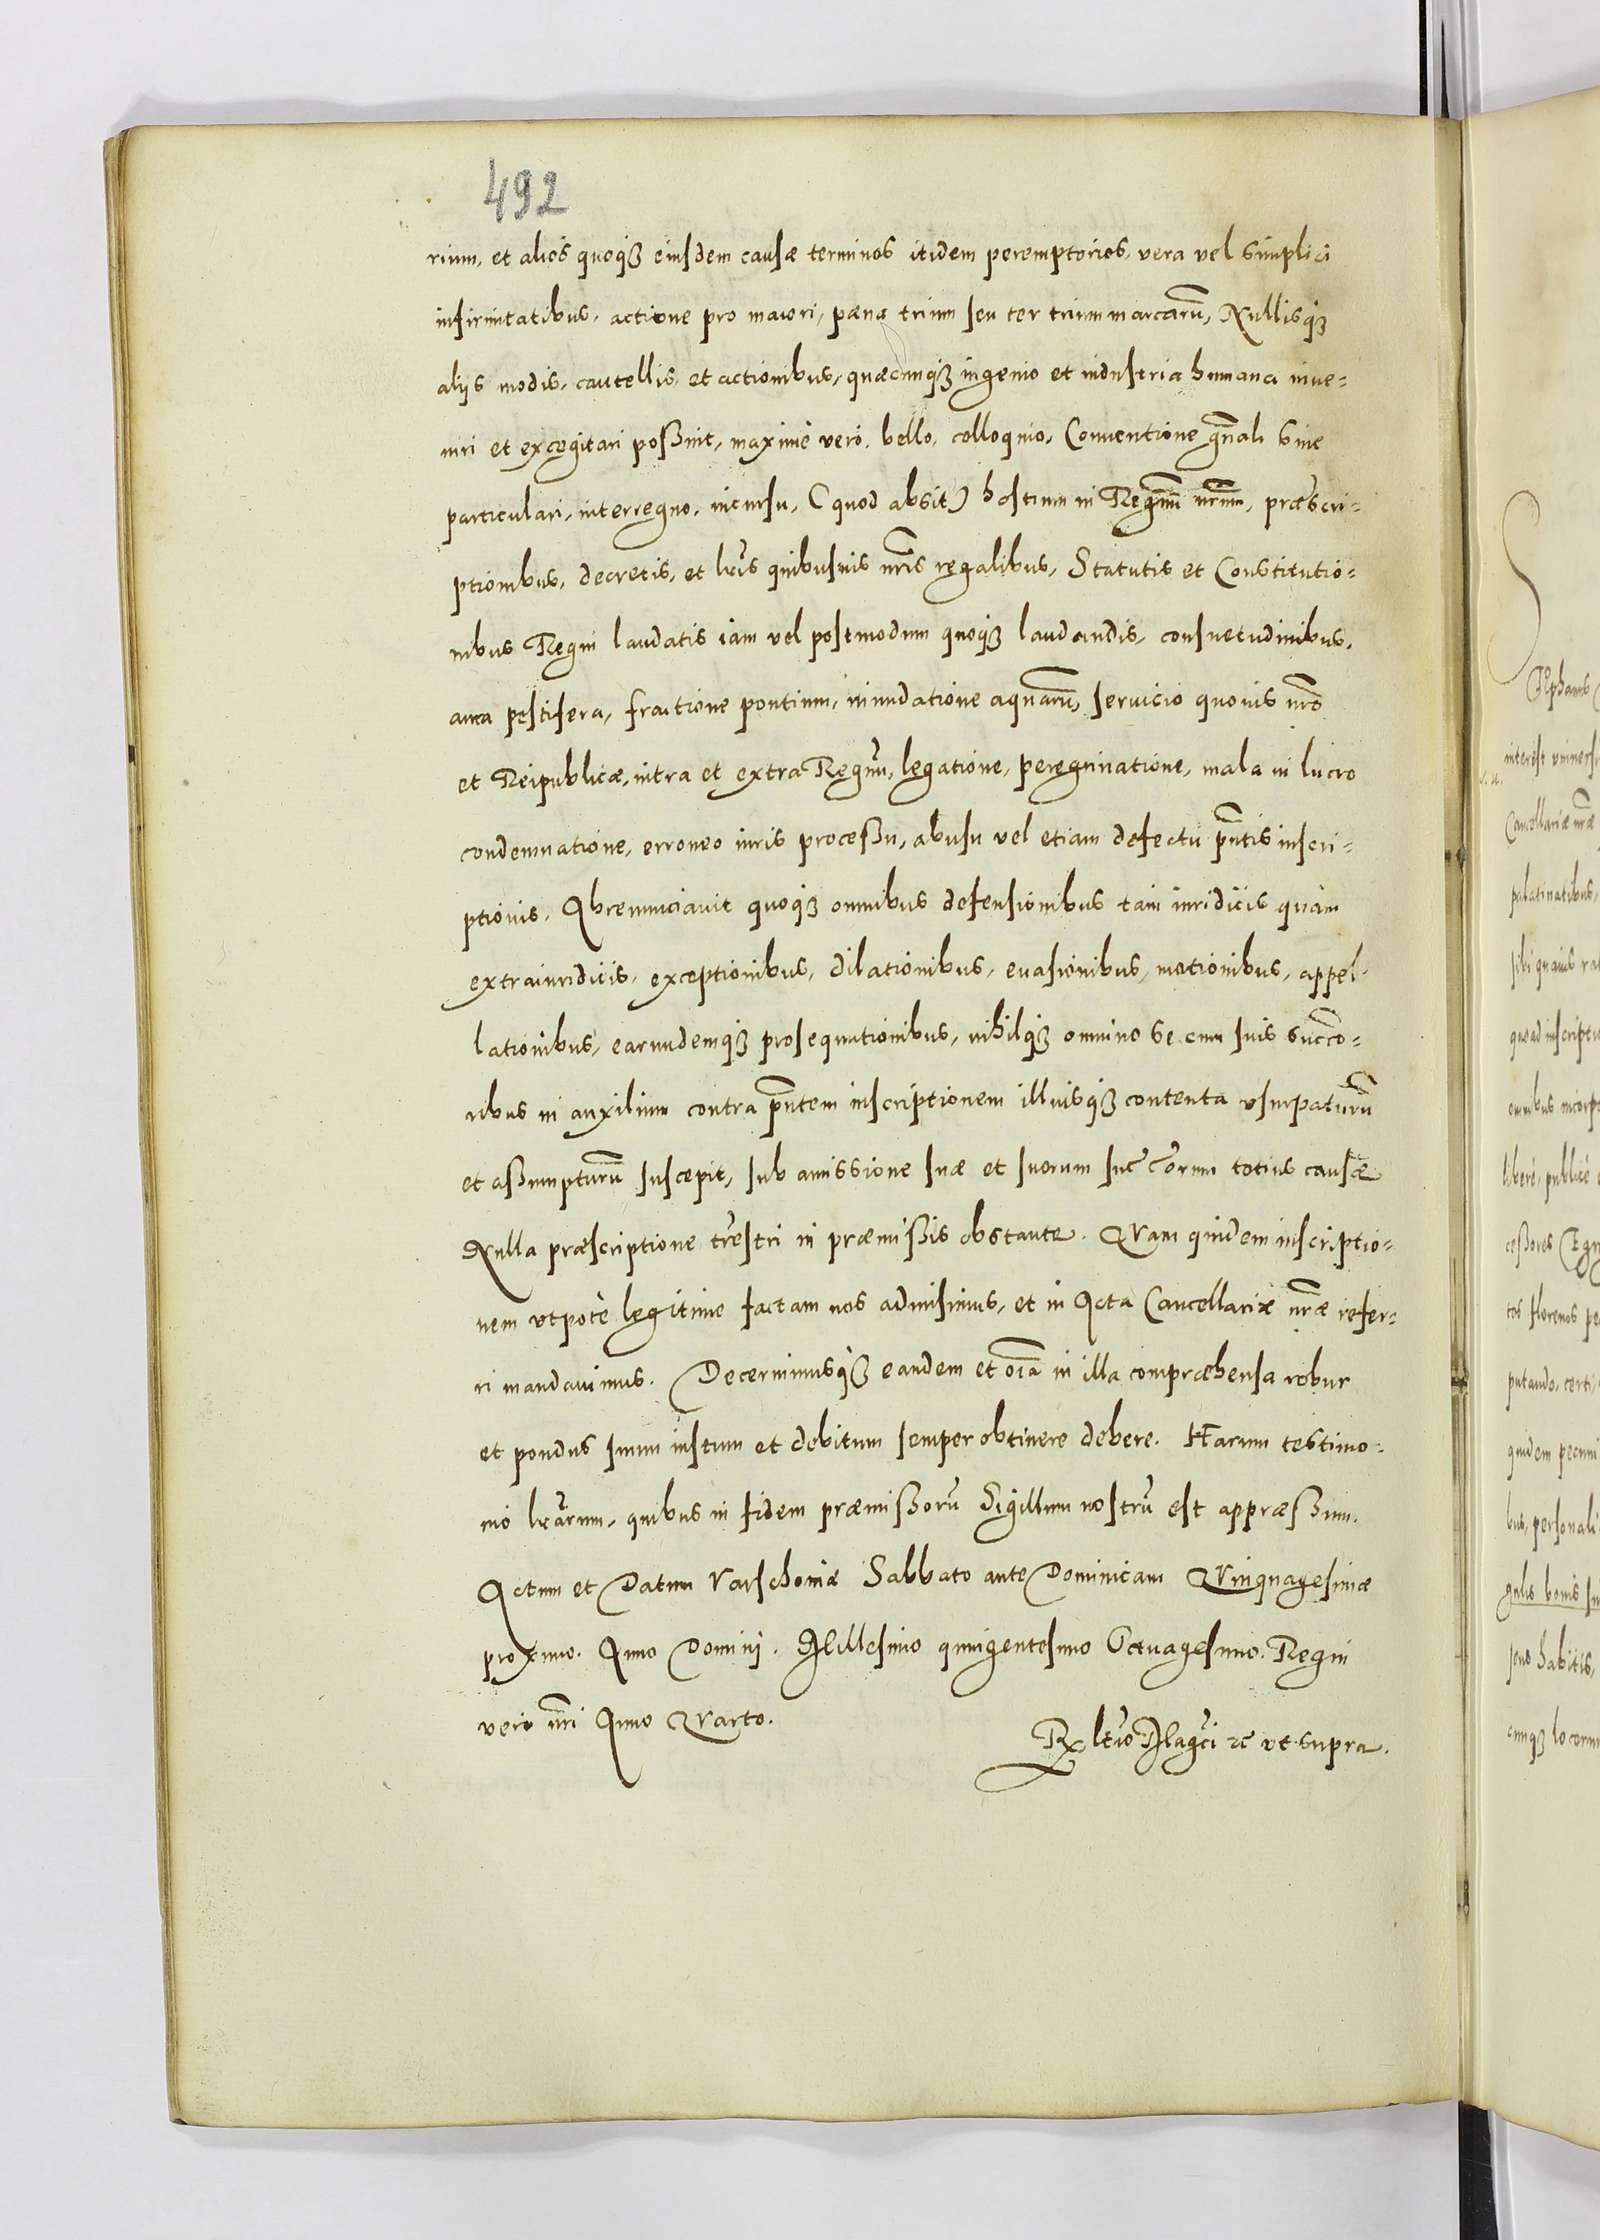 492
rium, et alios quoq₃ eiusdem causæ terminos itidem peremptorios, vera vel simplici
infirmitatibus, actione pro maiori, pæna trium seu ter trium marcarū, Nullisq₃
alijs modis, cautellis, et actionibus, quæcunq₃ ingenio et industria humana inue-
niri et excogitari possint, maxime vero, bello, colloquio, Conuentione gn̄ali siue
particulari, interregno, incursu, (quod absit) hostium in Regnum nr̄um, præscri-
ptionibus, decretis, et lr̄is quibusuis nr̄is regalibus, Statutis et Constitutio-
nibus Regni laudatis iam vel postmodum quoq₃ laudandis, consuetudinibus,
aura pestifera, fractione pontium, inundatione aquarū, seruicio quouis nr̄o
et Reipublicæ, intra et extra Regnū, legatione, peregrinatione, mala in lucro
condemnatione, erroneo iuris processu, abusu vel etiam defectu pn̄tis inscri-
ptionis. Abrenunciauit quoq₃ omnibus defensionibus tam iuridicis quàm
extraiuridicis, exceptionibus, dilationibus, euasionibus, motionibus, appel-
lationibus, earundemq₃ prosequutionibus, nihilq₃ omnino se cum suis succo-
ribus in auxilium contra pn̄tem inscriptionem illiusq₃ contenta vsurpaturū
et assumpturū suscepit, sub amissione suæ et suorum suc̄c̄orum totius causæ
Nulla præscriptione tr̄estri in præmissis obstante. Quam quidem inscriptio-
nem vtpotè legitime factam nos admisimus, et in Acta Cancellariæ nr̄æ refer-
ri mandauimus. Decernimusq₃ eandem et oīa in illa compræhensa robur
et pondus suum iustum et debitum semper obtinere debere. Harum testimo-
nio lr̄arum, quibus in fidem præmissorū Sigillum nostrū est appræssum.
Actum et Datum Varschoviæ Sabbato ante Dominicam Quinquagesimæ
proximo. Anno Domini. Millesimo quingentesimo Octuagesimo. Regni
vero nr̄i Anno Quarto.
Rx ltīo Magc̄i rc vt supra.
Stephanus
interest vniuers
Cancellariæ nr̄æ
palatinatibus,
sibi quauis
quòd inscriptio
omnibus incorp
libere, publicè
cessores
tos florenos pe
putando, certi
quidem pecuni
bus, personali
gulis bonis su
habitis,